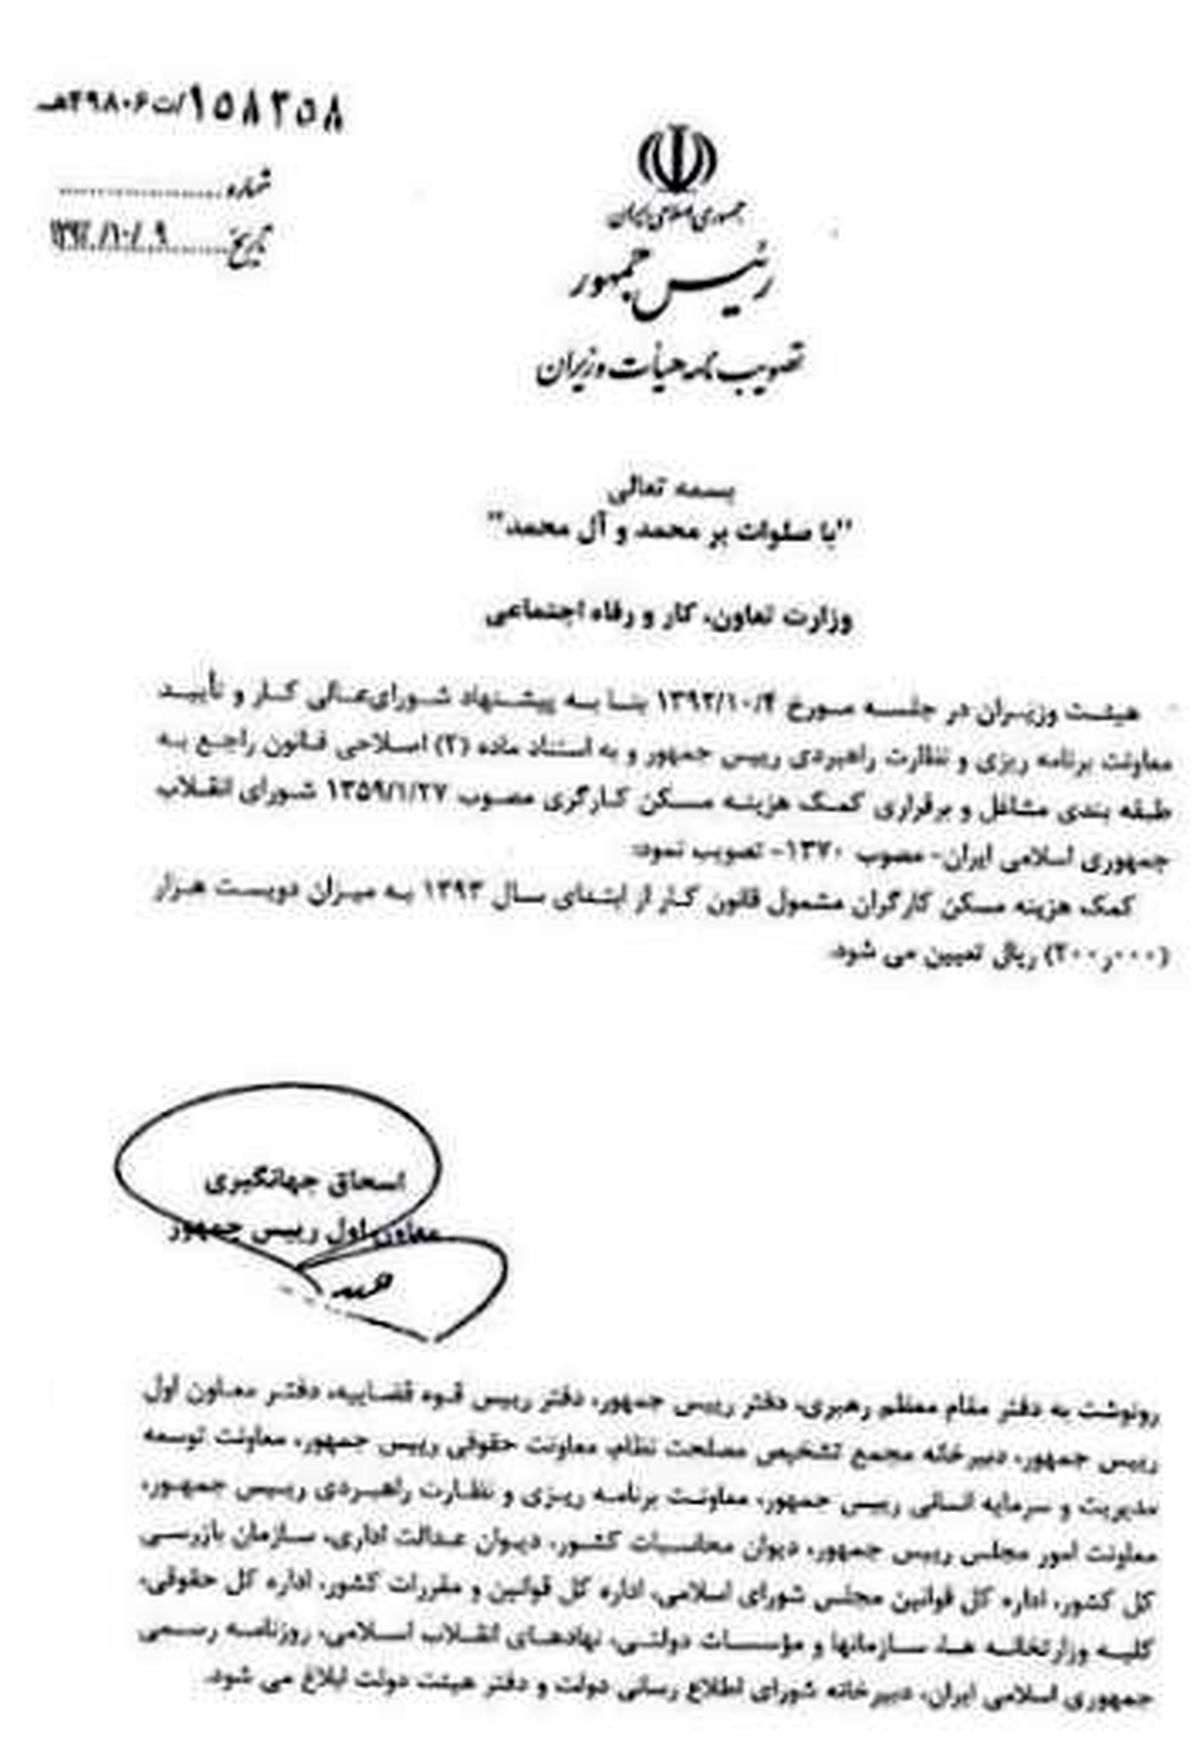 ۱۵۸۲۵۸/ت۴۹۸۰۶هـ
شماره
تاریخ ۱۳۹۲/۱۰/۰۹
جمهوری اسلامی ایران
رئیس جمهور
تصویب نامه هیأت وزیران
بسمه تعالی
"با صلوات بر محمد و آل محمد"
وزارت تعاون، کار و رفاه اجتماعی
هیئت وزیران در جلسه مورخ ۱۳۹۲/۱۰/۴ بنا به پیشنهاد شورای‌عالی کار و تأیید
معاونت برنامه ریزی و نظارت راهبردی رییس جمهور و به استناد ماده (۲) اصلاحی قانون راجع به
طبقه بندی مشاغل و برقراری کمک هزینه مسکن کارگری مصوب ۱۳۵۹/۱/۲۷ شورای انقلاب
جمهوری اسلامی ایران- مصوب ۱۳۷۰- تصویب نمود:
کمک هزینه مسکن کارگران مشمول قانون کار از ابتدای سال ۱۳۹۳ به میزان دویست هزار
(۲۰۰ر۰۰۰) ریال تعیین می شود.
اسحاق جهانگیری
معاون اول رییس جمهور
رونوشت به دفتر مقام معظم رهبری، دفتر رییس جمهور، دفتر رییس قوه قضاییه، دفتر معاون اول
رییس جمهور، دبیرخانه مجمع تشخیص مصلحت نظام، معاونت حقوقی رییس جمهور، معاونت توسعه
مدیریت و سرمایه انسانی رییس جمهور، معاونت برنامه ریزی و نظارت راهبردی رییس جمهور،
معاونت امور مجلس رییس جمهور، دیوان محاسبات کشور، دیوان عدالت اداری، سازمان بازرسی
کل کشور، اداره کل قوانین مجلس شورای اسلامی، اداره کل قوانین و مقررات کشور، اداره کل حقوقی،
کلیه وزارتخانه ها، سازمانها و مؤسسات دولتی، نهادهای انقلاب اسلامی، روزنامه رسمی
جمهوری اسلامی ایران، دبیرخانه شورای اطلاع رسانی دولت و دفتر هیئت دولت ابلاغ می شود.